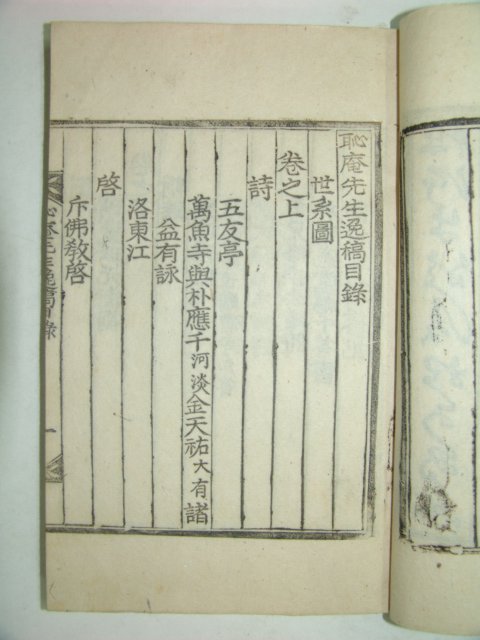 恥庵先生逸稿目錄
世系圖
卷之上
詩
五友亭
萬魚寺與朴應千河淡金天祐大有諸
益有詠
洛東江
啓
斥佛敎啓
恥庵先生逸稿目錄 一